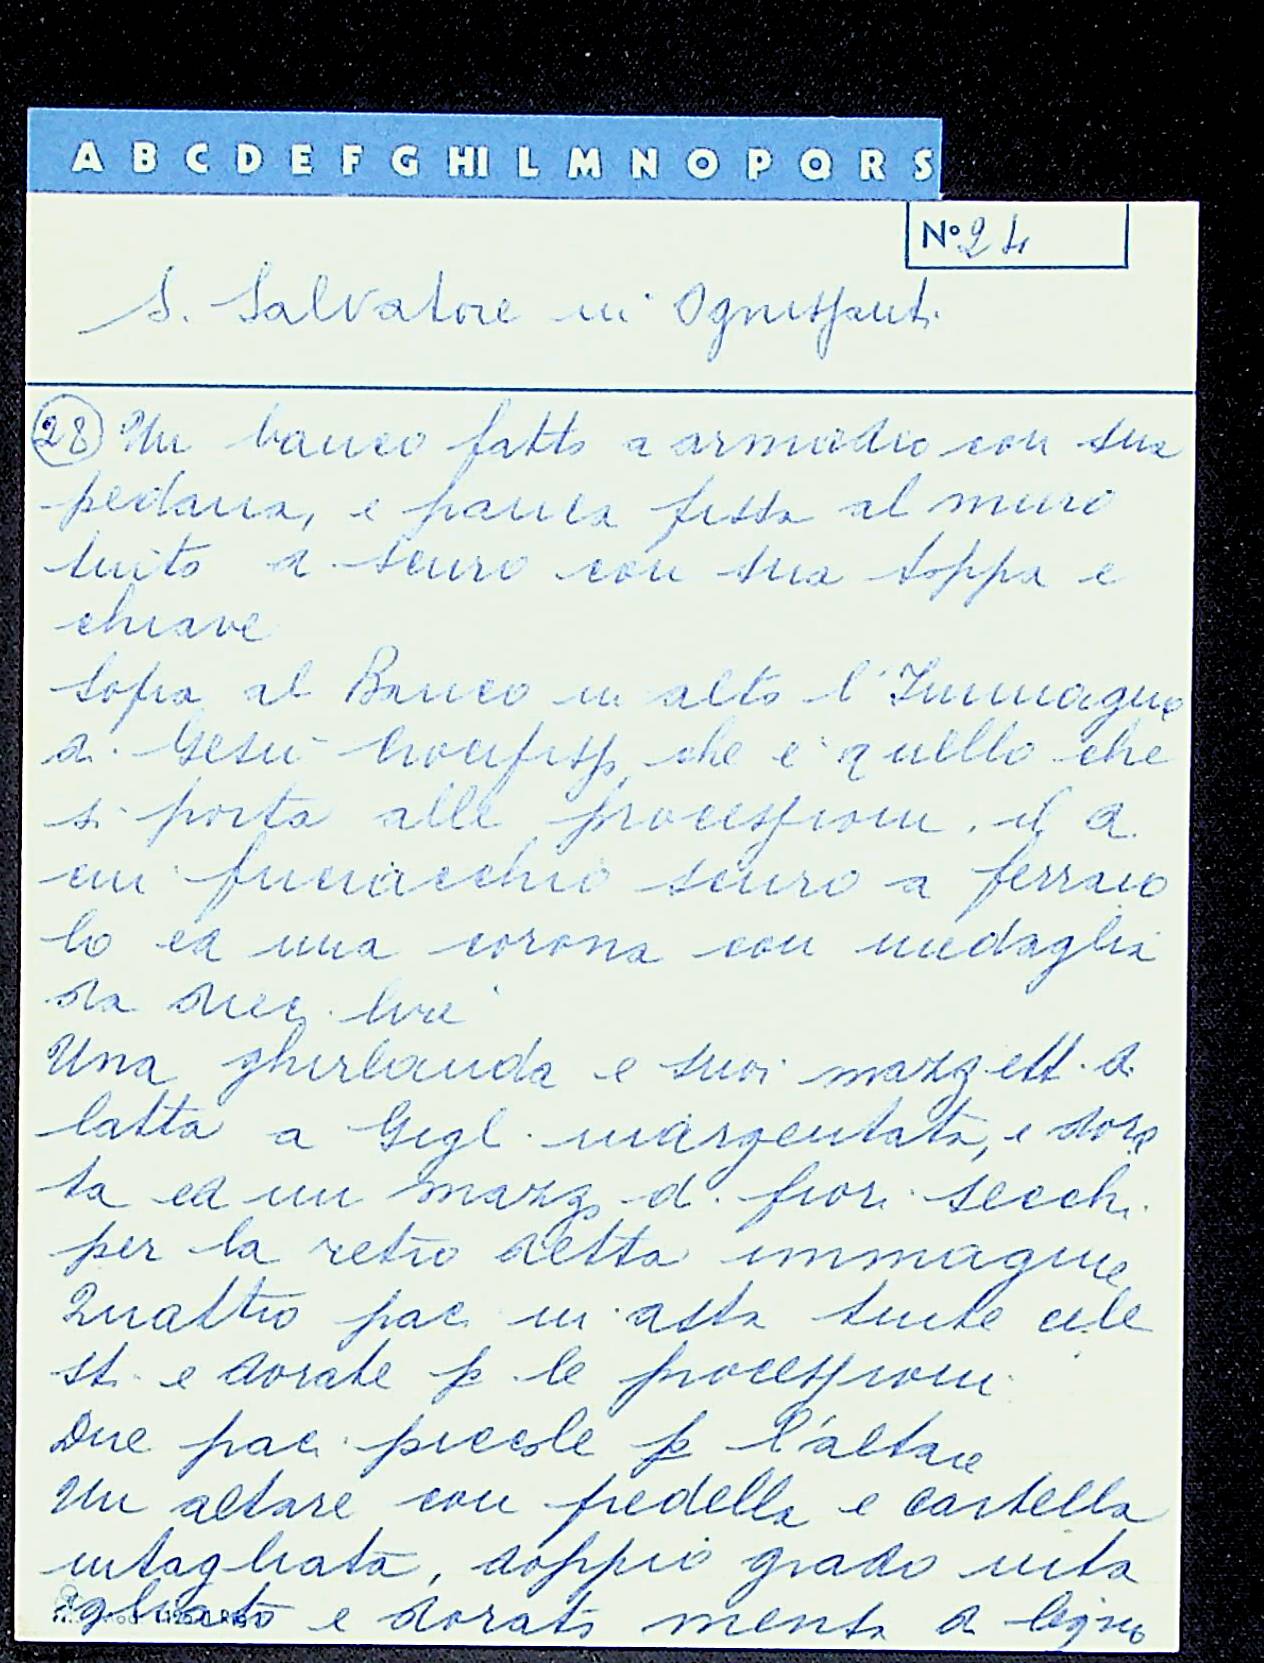 A B C D E F G HI L M N O P Q R S
N° 24
S. Salvatore in Ognissanti
28 Un banco fatto a armadio con sua
pedana, e panca fissa al muro
tinto a scuro con sua toppa e
chiave
Sopra al Banco in alto l'Immagine
di Gesù Crocifisso, che è quello che
si porta alle processioni, ed a
un scuro a ferraio
lo ed una corona con medaglia
da dieci lire
Una ghirlanda e suoi mazzetti di
latta a Gigli inargentata, e dora
ta ed un mazzo di fiori secchi
per la retro detta immagine
Quattro paci in asta tinte cele
sti e dorate p le processioni
Due paci piccole p l'altare
Un altare con predella e cartella
intagliata, doppio grado inta
gliato e dorato mensa di legno